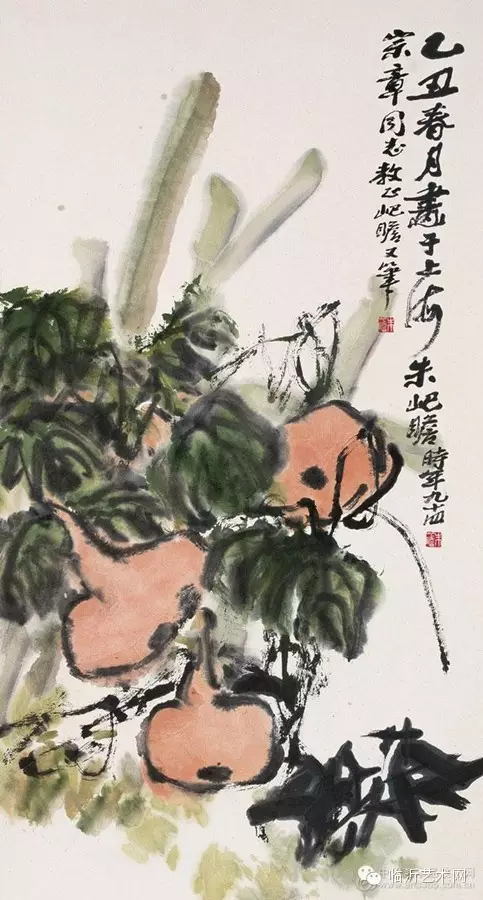 乙丑春月畫于上海 朱屺瞻 時年九十四
宗章同志教正 屺瞻又筆
临沂艺术网